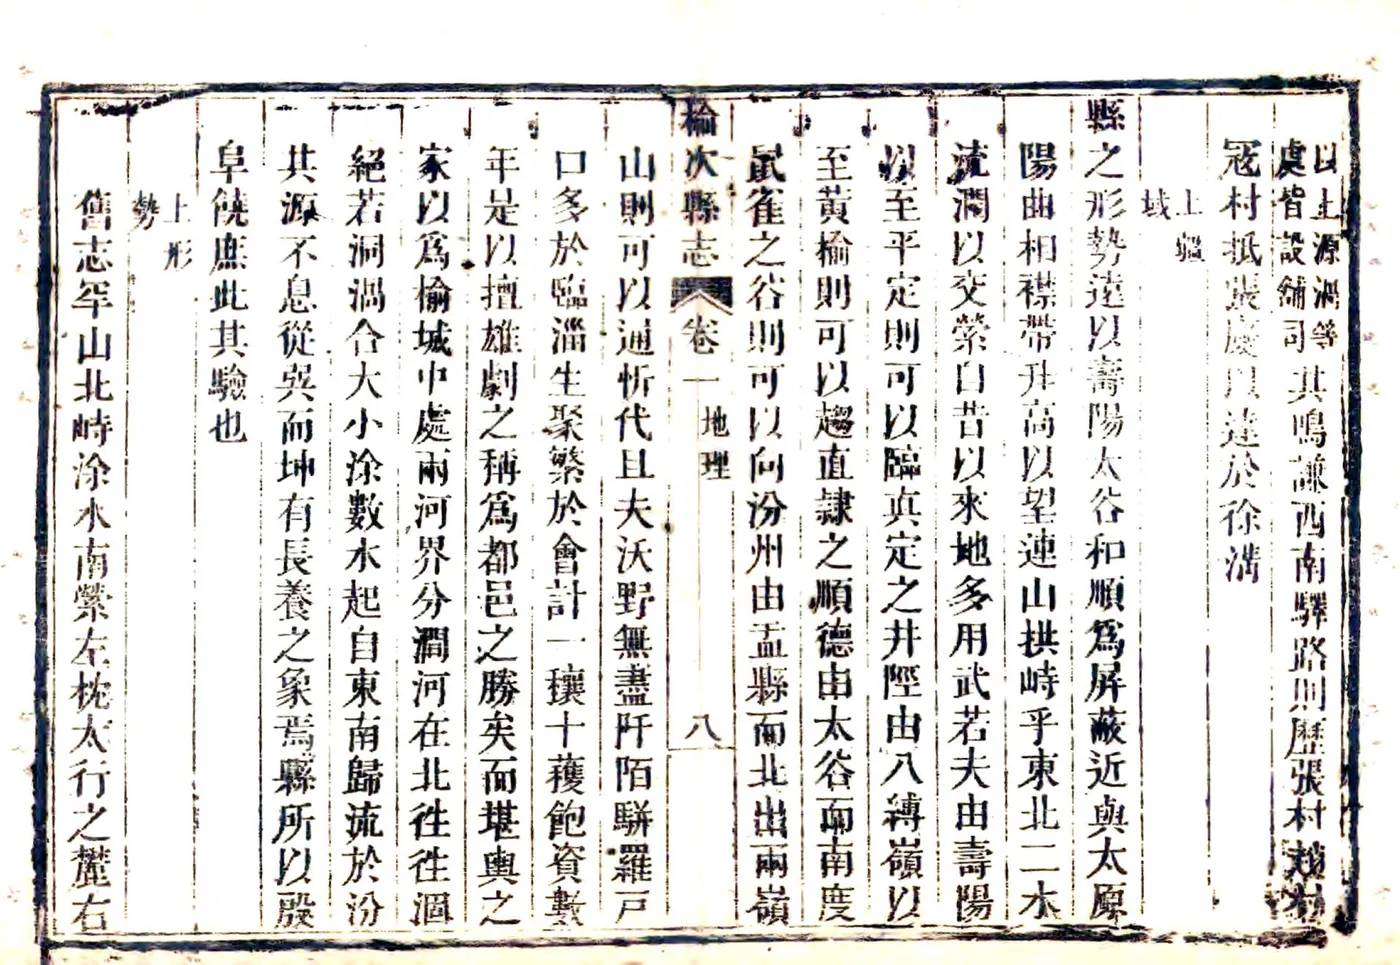 以上源渦等
虞皆設舖司其鳴謙西南驛路則歷張村趙村
冦村抵張慶以達於徐溝
上疆
域
縣之形勢遠以壽陽太谷和順爲屏蔽近與太原
陽曲相襟帶升高以望連山拱峙乎東北二水
流潤以交縈自昔以來地多用武若夫由壽陽
以至平定則可以臨真定之井陘由八縛嶺以
至黃榆則可以趨直隷之順德由太谷而南度
鼠雀之谷則可以向汾州由盂縣而北出兩嶺
榆次縣志
卷一
地理
八
山則可以通忻代且夫沃野無盡阡陌駢羅戸
口多於臨淄生聚繁於會計一穰十穫飽資數
年是以擅雄劇之稱爲都邑之勝矣而堪輿之
家以爲榆城中處兩河界分澗河在北徃徃涸
絕若洞渦合大小涂數水起自東南歸流於汾
其源不息從巽而坤有長養之象焉縣所以殷
阜饒庶此其驗也
上形
勢
舊志罕山北峙涂水南縈左枕太行之麓右